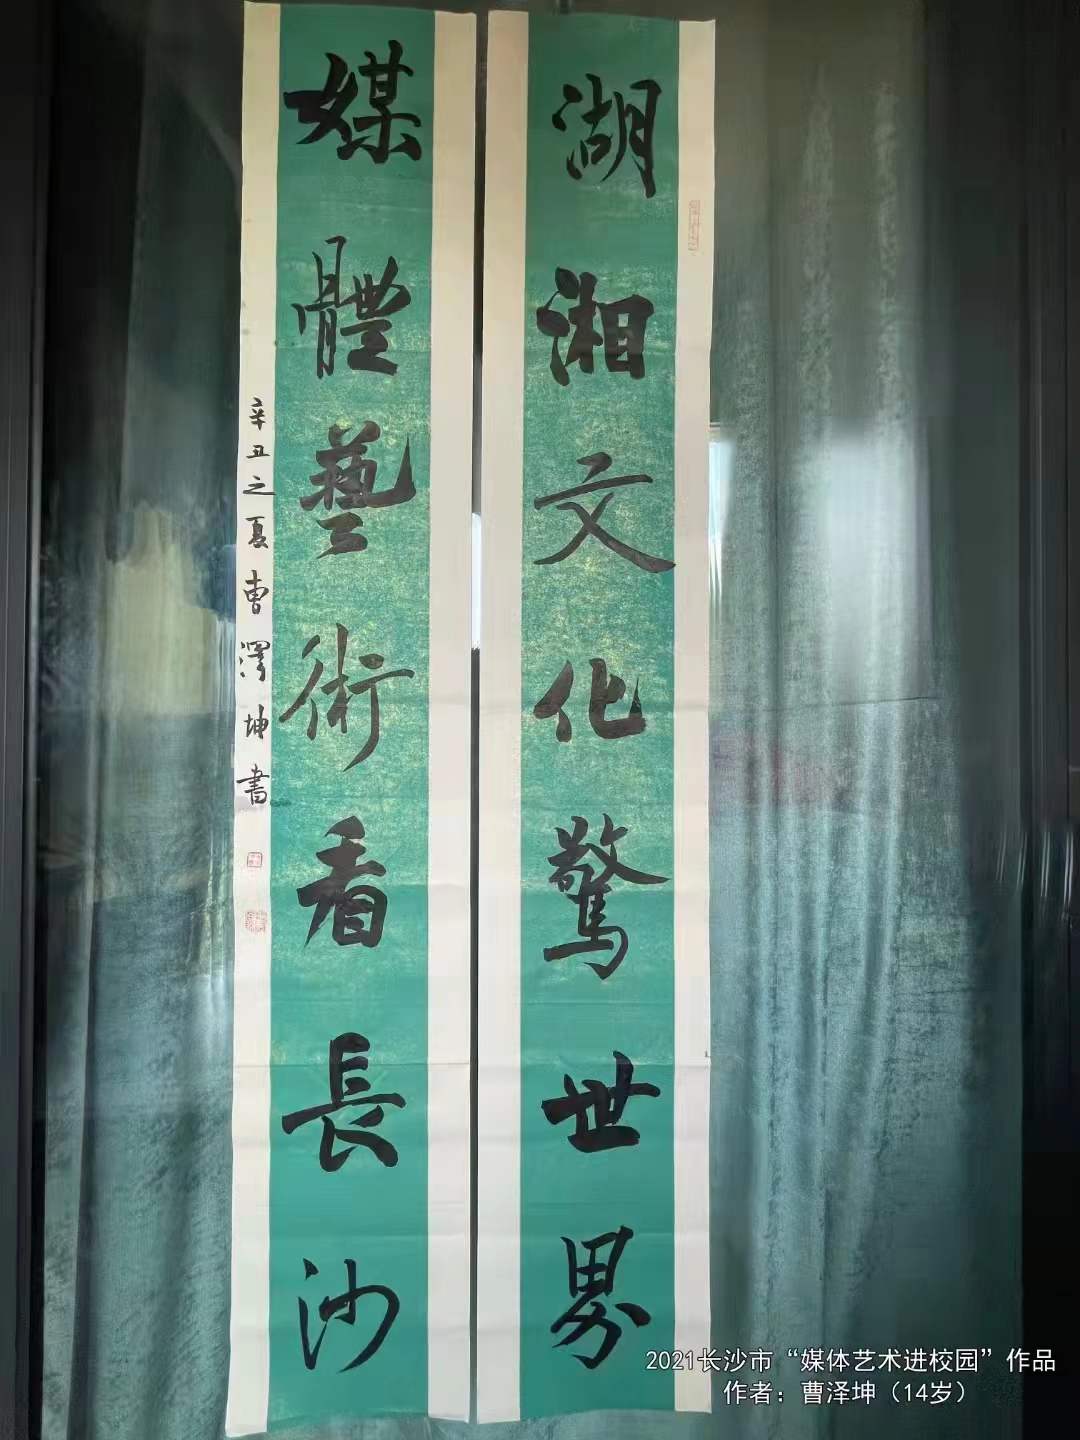 湖湘文化驚世界
媒體藝術看長沙
辛丑之夏曹澤坤書
2021长沙市“媒体艺术进校园”作品
作者：曹泽坤（14岁）